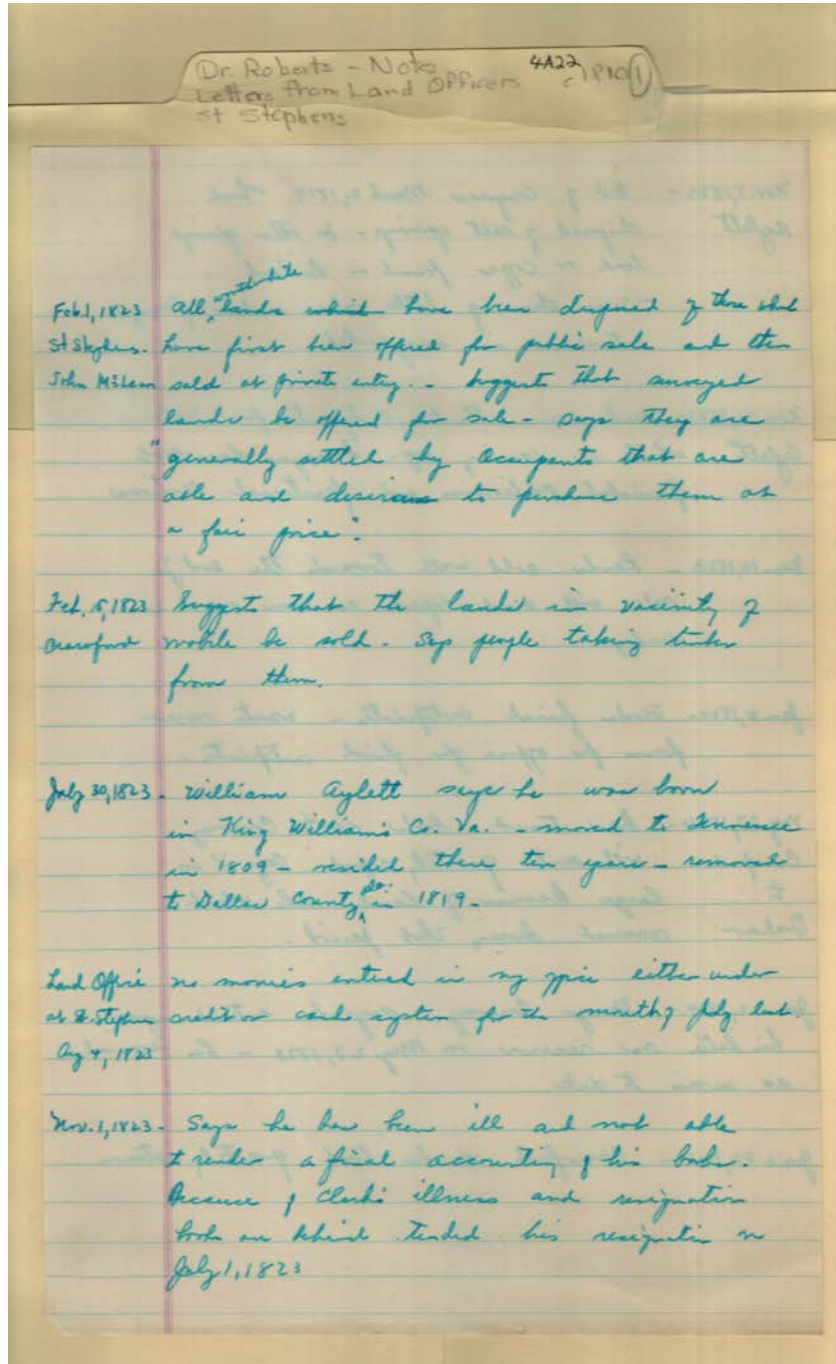 Dr. Roberts - Notes 4A22 c 1810 1
Letters from Land Officers
St Stephens
worthwhile
Feb. 1, 1823 All lands which have been disposed of those that
St Stephens. have first been offered for public sale and then
John McLean sold at private entry.. Suggests that surveyed
lands be offered for sale - says they are
"generally settled by Occupants that are
able and desirous to purchase them at
a fair price".
Feb. 15, 1823 Suggests that the lands in vacinity of
Crawford mobile be sold. Says people taking timber
from them.
July 30, 1823 - William Aylett says he was born
in King William's Co. Va. - moved to Tennessee
in 1809 - resided there ten years - removed
to Dallas County in 1819 -
Land Office no monies entered in my office either under
at St. Stephens credit or cash system for the month of July last.
Aug 4, 1823
Nov. 1, 1823 - Says he has been ill and not able
to render a final accounting of his books.
Because of Clerk's illness and resignation
books are behind tended his resignation on
July 1, 1823